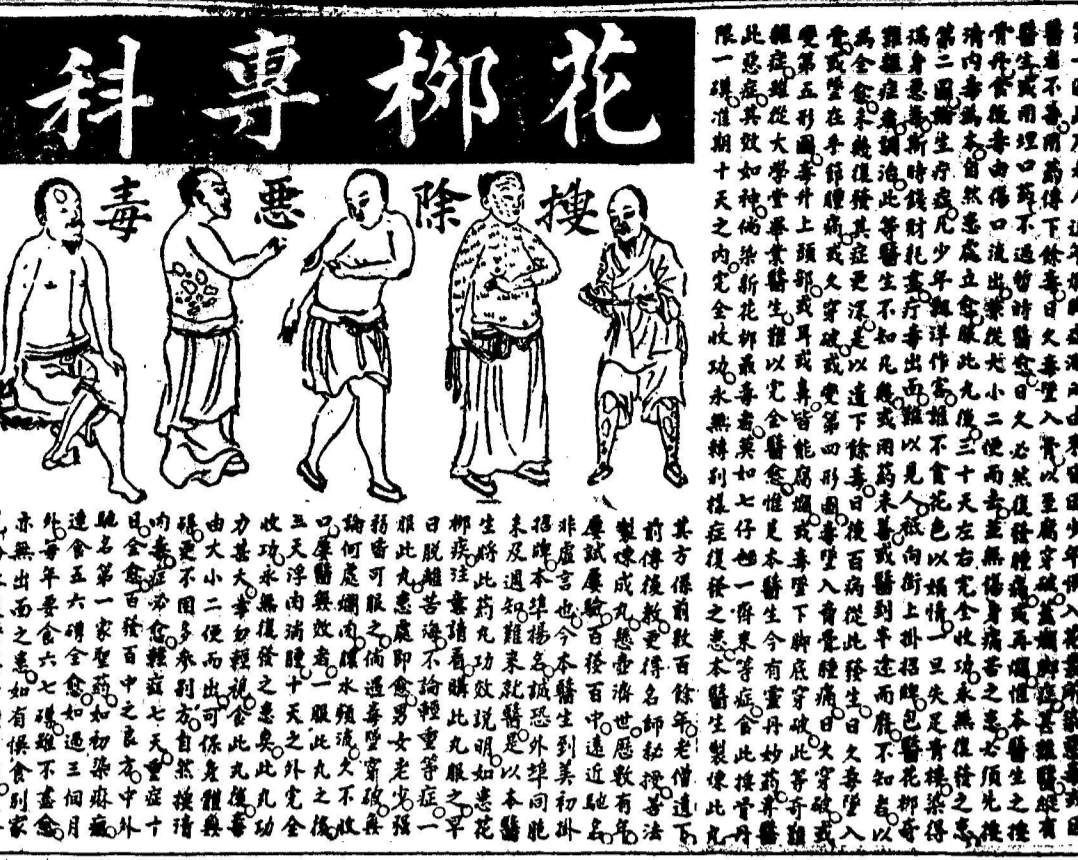 花栁專科
搜除惡毒
醫者不善用葯傳下餘毒日久毒墜入骨以至腐穿破蓋爛脚症甚難醫
醫生或用埋口葯不過暫時醫愈日久必然復發腫痛或再爛惟本醫生之搜
骨丹食後毒由傷口流出藥從大小二便而去並無傷身痛苦之患必須先搜
清內毒為本自然患處立愈服此丸後三十天左右完全收功永無復發之患
第二圖論生疔疽凡少年飄洋作客誰不貪花色以娛情一旦失足青樓染得
身惡毒斯時錢財耗盡疔毒出面難以見人祗向街上掛招牌包醫花栁奇
難雜症處調治此等醫生不知凡幾或用葯未善或醫到半途而廢不知者以
為全愈未幾復發其症更深是以遺下餘毒日後百病從此發生日久毒墜入
骨或墜在手節腫痛或久穿破或變第四形圖毒墜入脊骨腫痛日久穿破或
變第五形圖毒升上頭部或耳或鼻皆能腐爛或毒墜下脚底穿破此等奇難
雜症雖從大學堂畢業醫生難以完全醫愈惟是本醫生今有靈丹妙葯專醫
此惡症其效如神倘染新花栁最毒者莫如七仔一等症食此搜骨丹
限一磚准期十天之內完全收功永無轉別樣症復發之患本醫生製煉此丸
其方係前數百餘年老僧遺下
前傳後教更得名師秘授善法
製煉成丸懸壺濟世歷數有年
屢試屢驗百發百中遠近馳名
非虛言也今本醫生到美初掛
招牌本埠揚名誠恐外埠同胞
未及週知難來就醫是以本醫
生將此葯丸功效說明如患花
栁疾注意請看購此丸服之早
日脫離苦海不論輕重等症一
服此丸患處即愈男女老少強
弱皆可服之倘遇毒墜穿破無
論何處爛肉膿水頻流久不收
口屢醫無效者一服此丸之後
五天浮肉消腫十天之外完全
收功永無復發之患矣此丸功
力甚大幸勿輕視食此丸後毒
由大小二便而出可保身體無
碍更不用多求別方自然搜清
內毒症亦愈輕症七天重症十
日全愈百發百中之良方中外
馳名第一家聖葯如初染痳瘋
連食五六磚全愈如過三個月
外每年要食六七磚雖不盡愈
亦無出面之患如有悞食別家